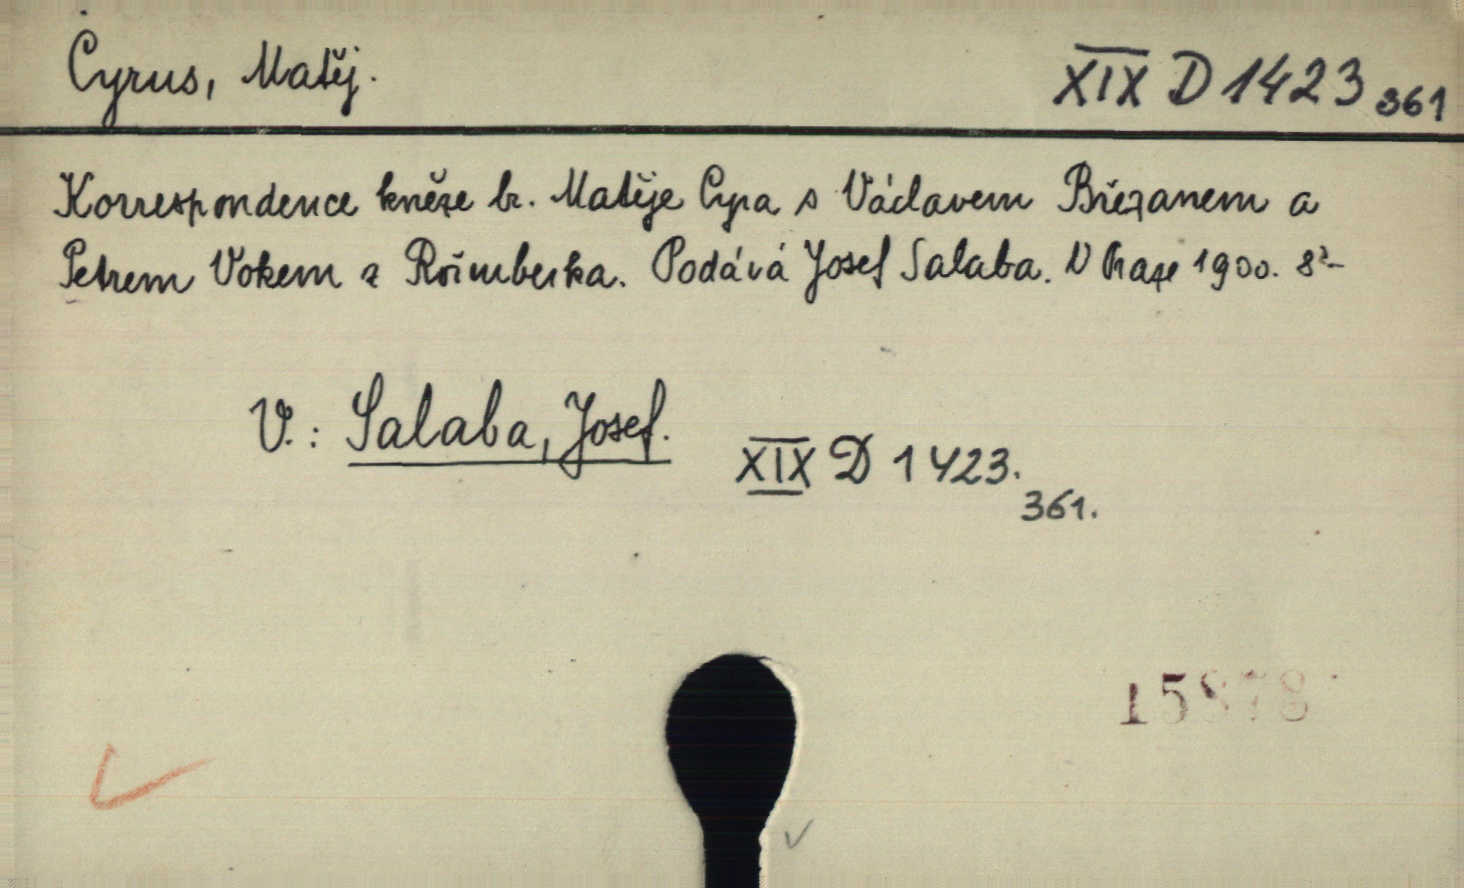 Cyrus, Matěj.
XIX D 1423 361
Korrespondence kněze br. Matěje Cyra s Václavem Břežanem a
Petrem Vokem z Rožmberka. Podává Josef Salaba. V Praze 1900. 8°-
V.: Salaba, Josef.
XIX D 1423.
361.
15878